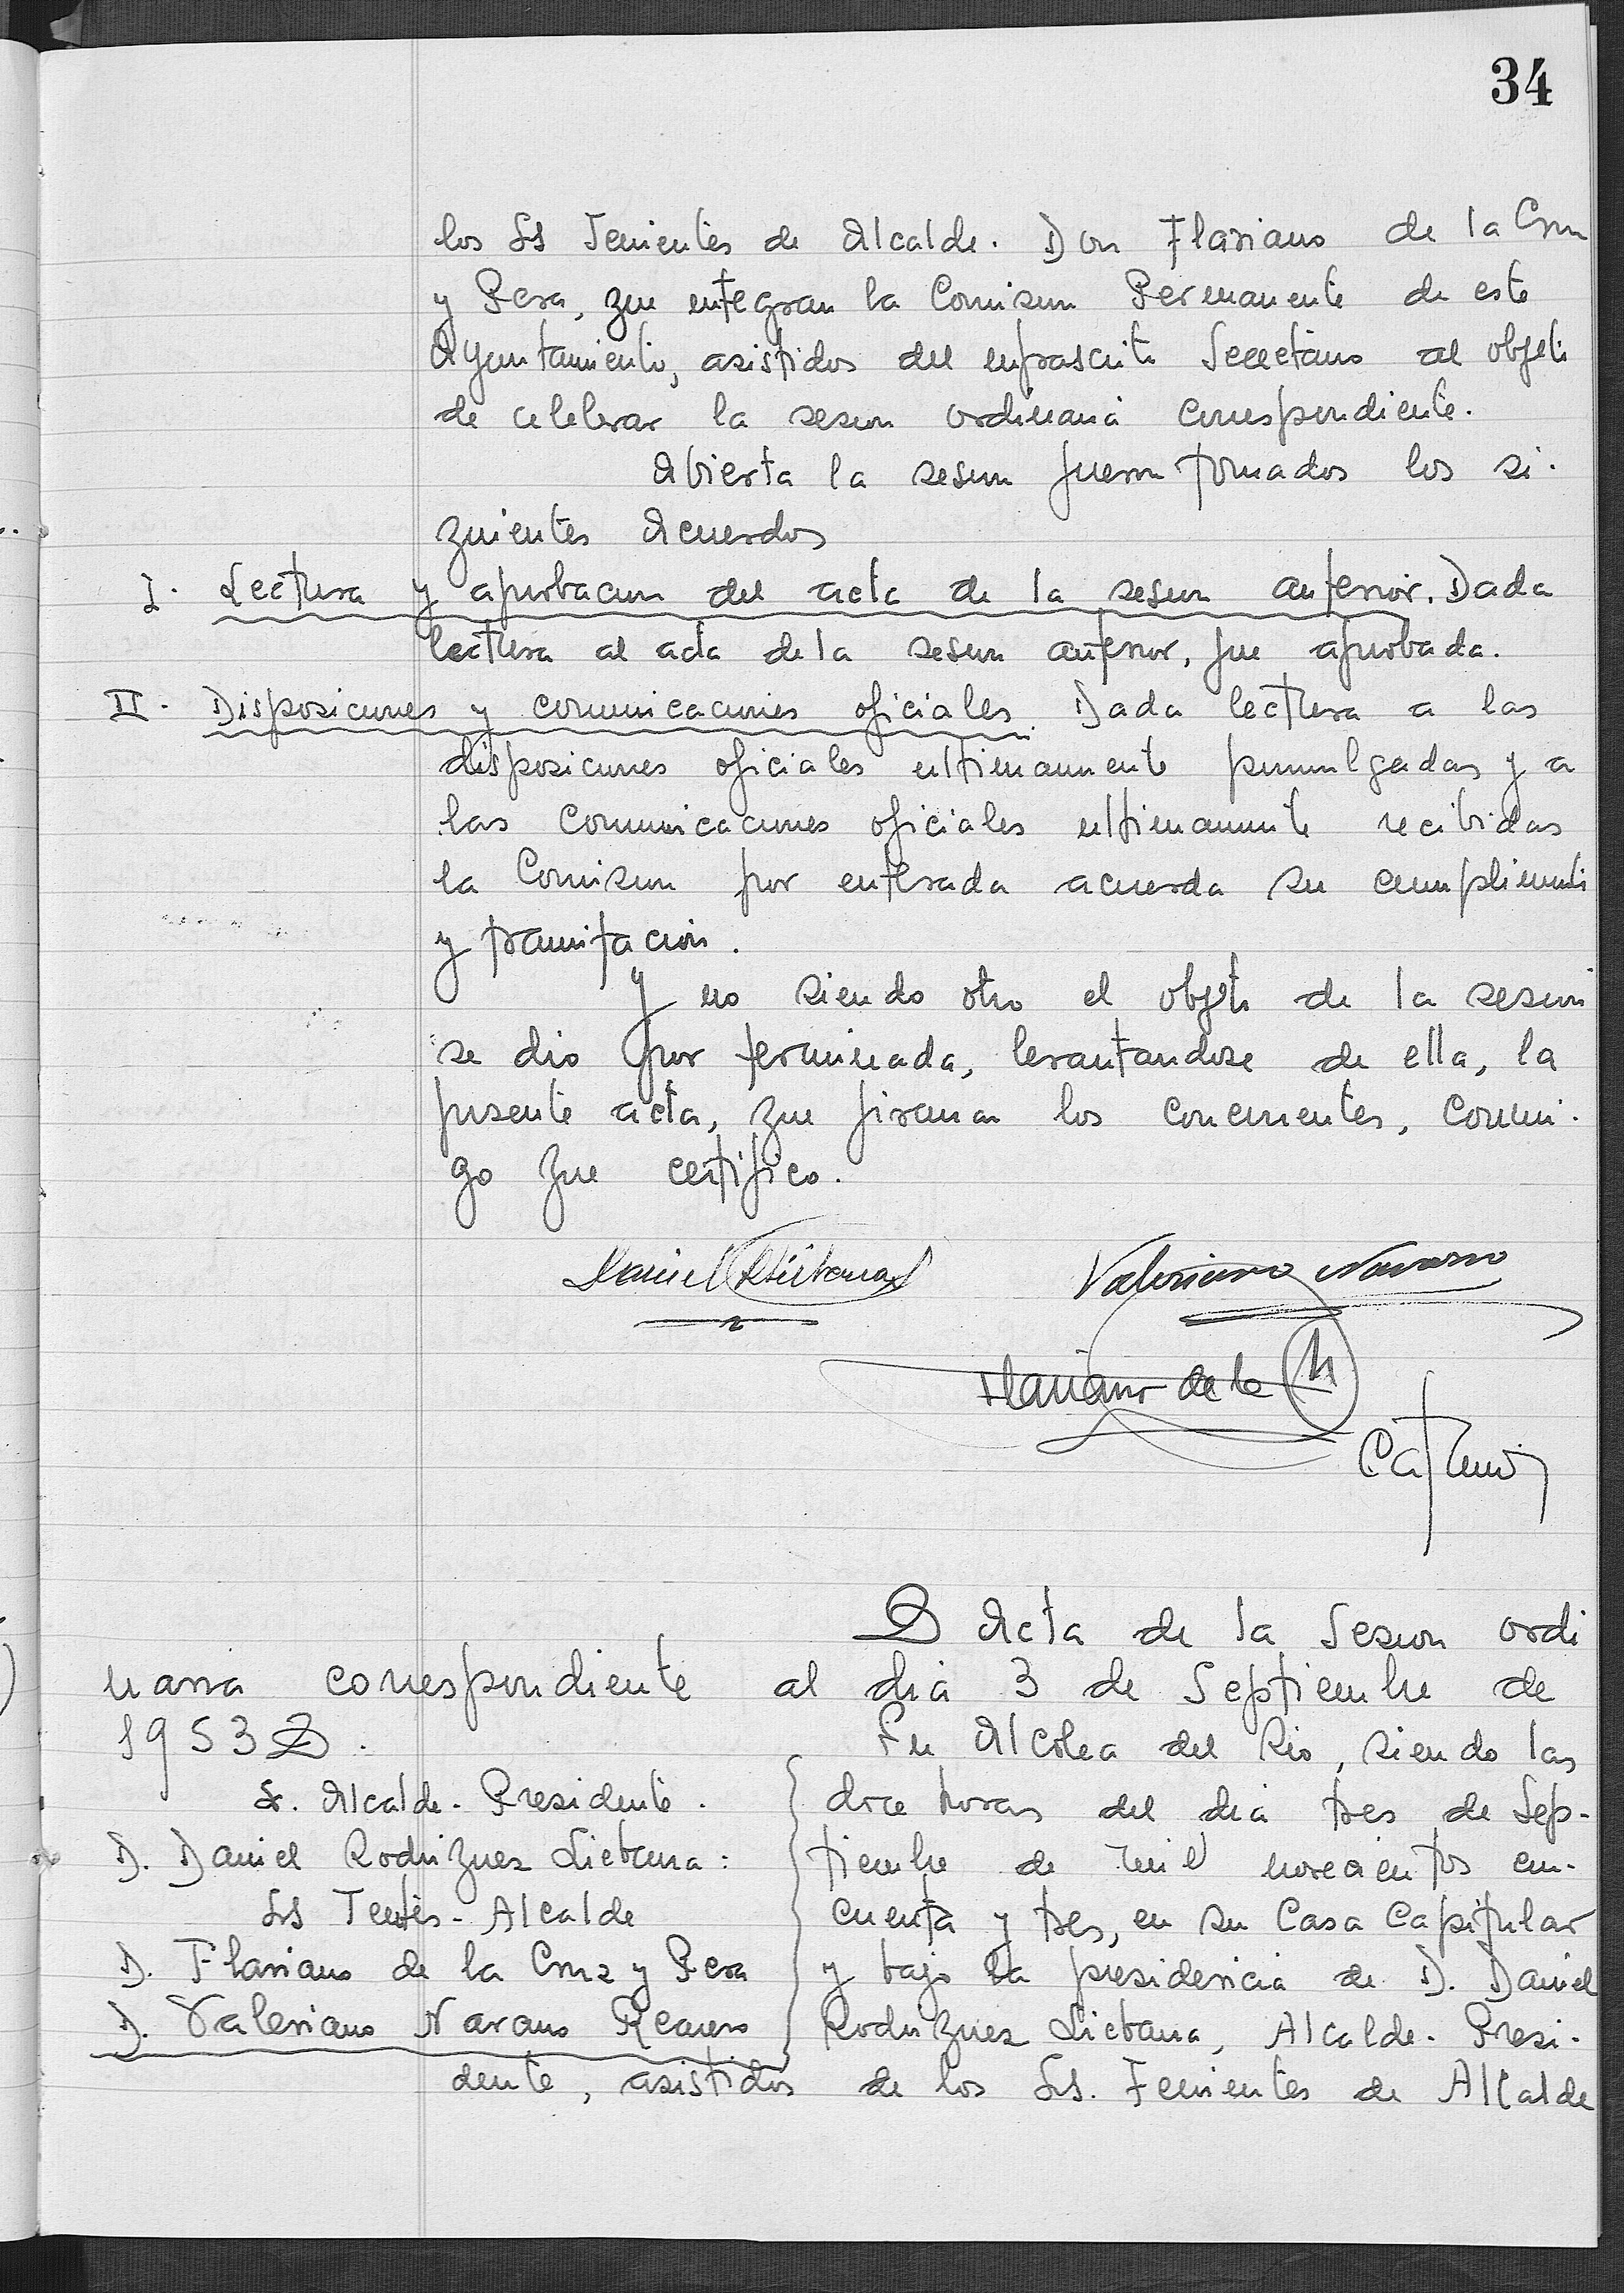 34
los Ss Tenientes de Alcalde. Don Flaviano de la Cruz
y Pera, que integran la Comision Permanente de este
Ayuntamiento, asistidos del infrascrito Secretario al objeto
de celebrar la sesion ordinaria correspondiente.
Abierta la sesion fueron tomados los si-
guientes Acuerdos
I. Lectura y aprobacion del acta de la sesion anterior. Dada
lectura al acta de la sesion anterior, fue aprobada.
II. Disposiciones y comunicaciones oficiales. Dada lectura a las
disposiciones oficiales ultimamente promulgadas y a
las comunicaciones oficiales ultimamente recibidas
la Comision por enterada acuerda su cumplimiento
y tramitación.
Y no siendo otro el objeto de la sesion
se dio por terminada, levantandose de ella, la
presente acta, que firman los concurrentes, conmi-
go que certifico.
Daniel Liébana Valeriano Navarro
Flaviano de la
Acta de la Sesion ordi
naria correspondiente al dia 3 de Septiembre de
1953.
Sr. Alcalde-Presidente.
D. Daniel Rodriguez Liebana:
Ss Tentes-Alcalde
D. Flaviano de la Cruz y Pera
D. Valeriano Navarro
En Alcolea del Rio, siendo las
doce horas del dia tres de Sep-
tiembre de mil novecientos cin-
cuenta y tres, en su Casa Capitular
y bajo la presidencia de D. Daniel
Rodriguez Liebana, Alcalde-Presi-
dente, asistidos de los Ss. Tenientes de Alcalde